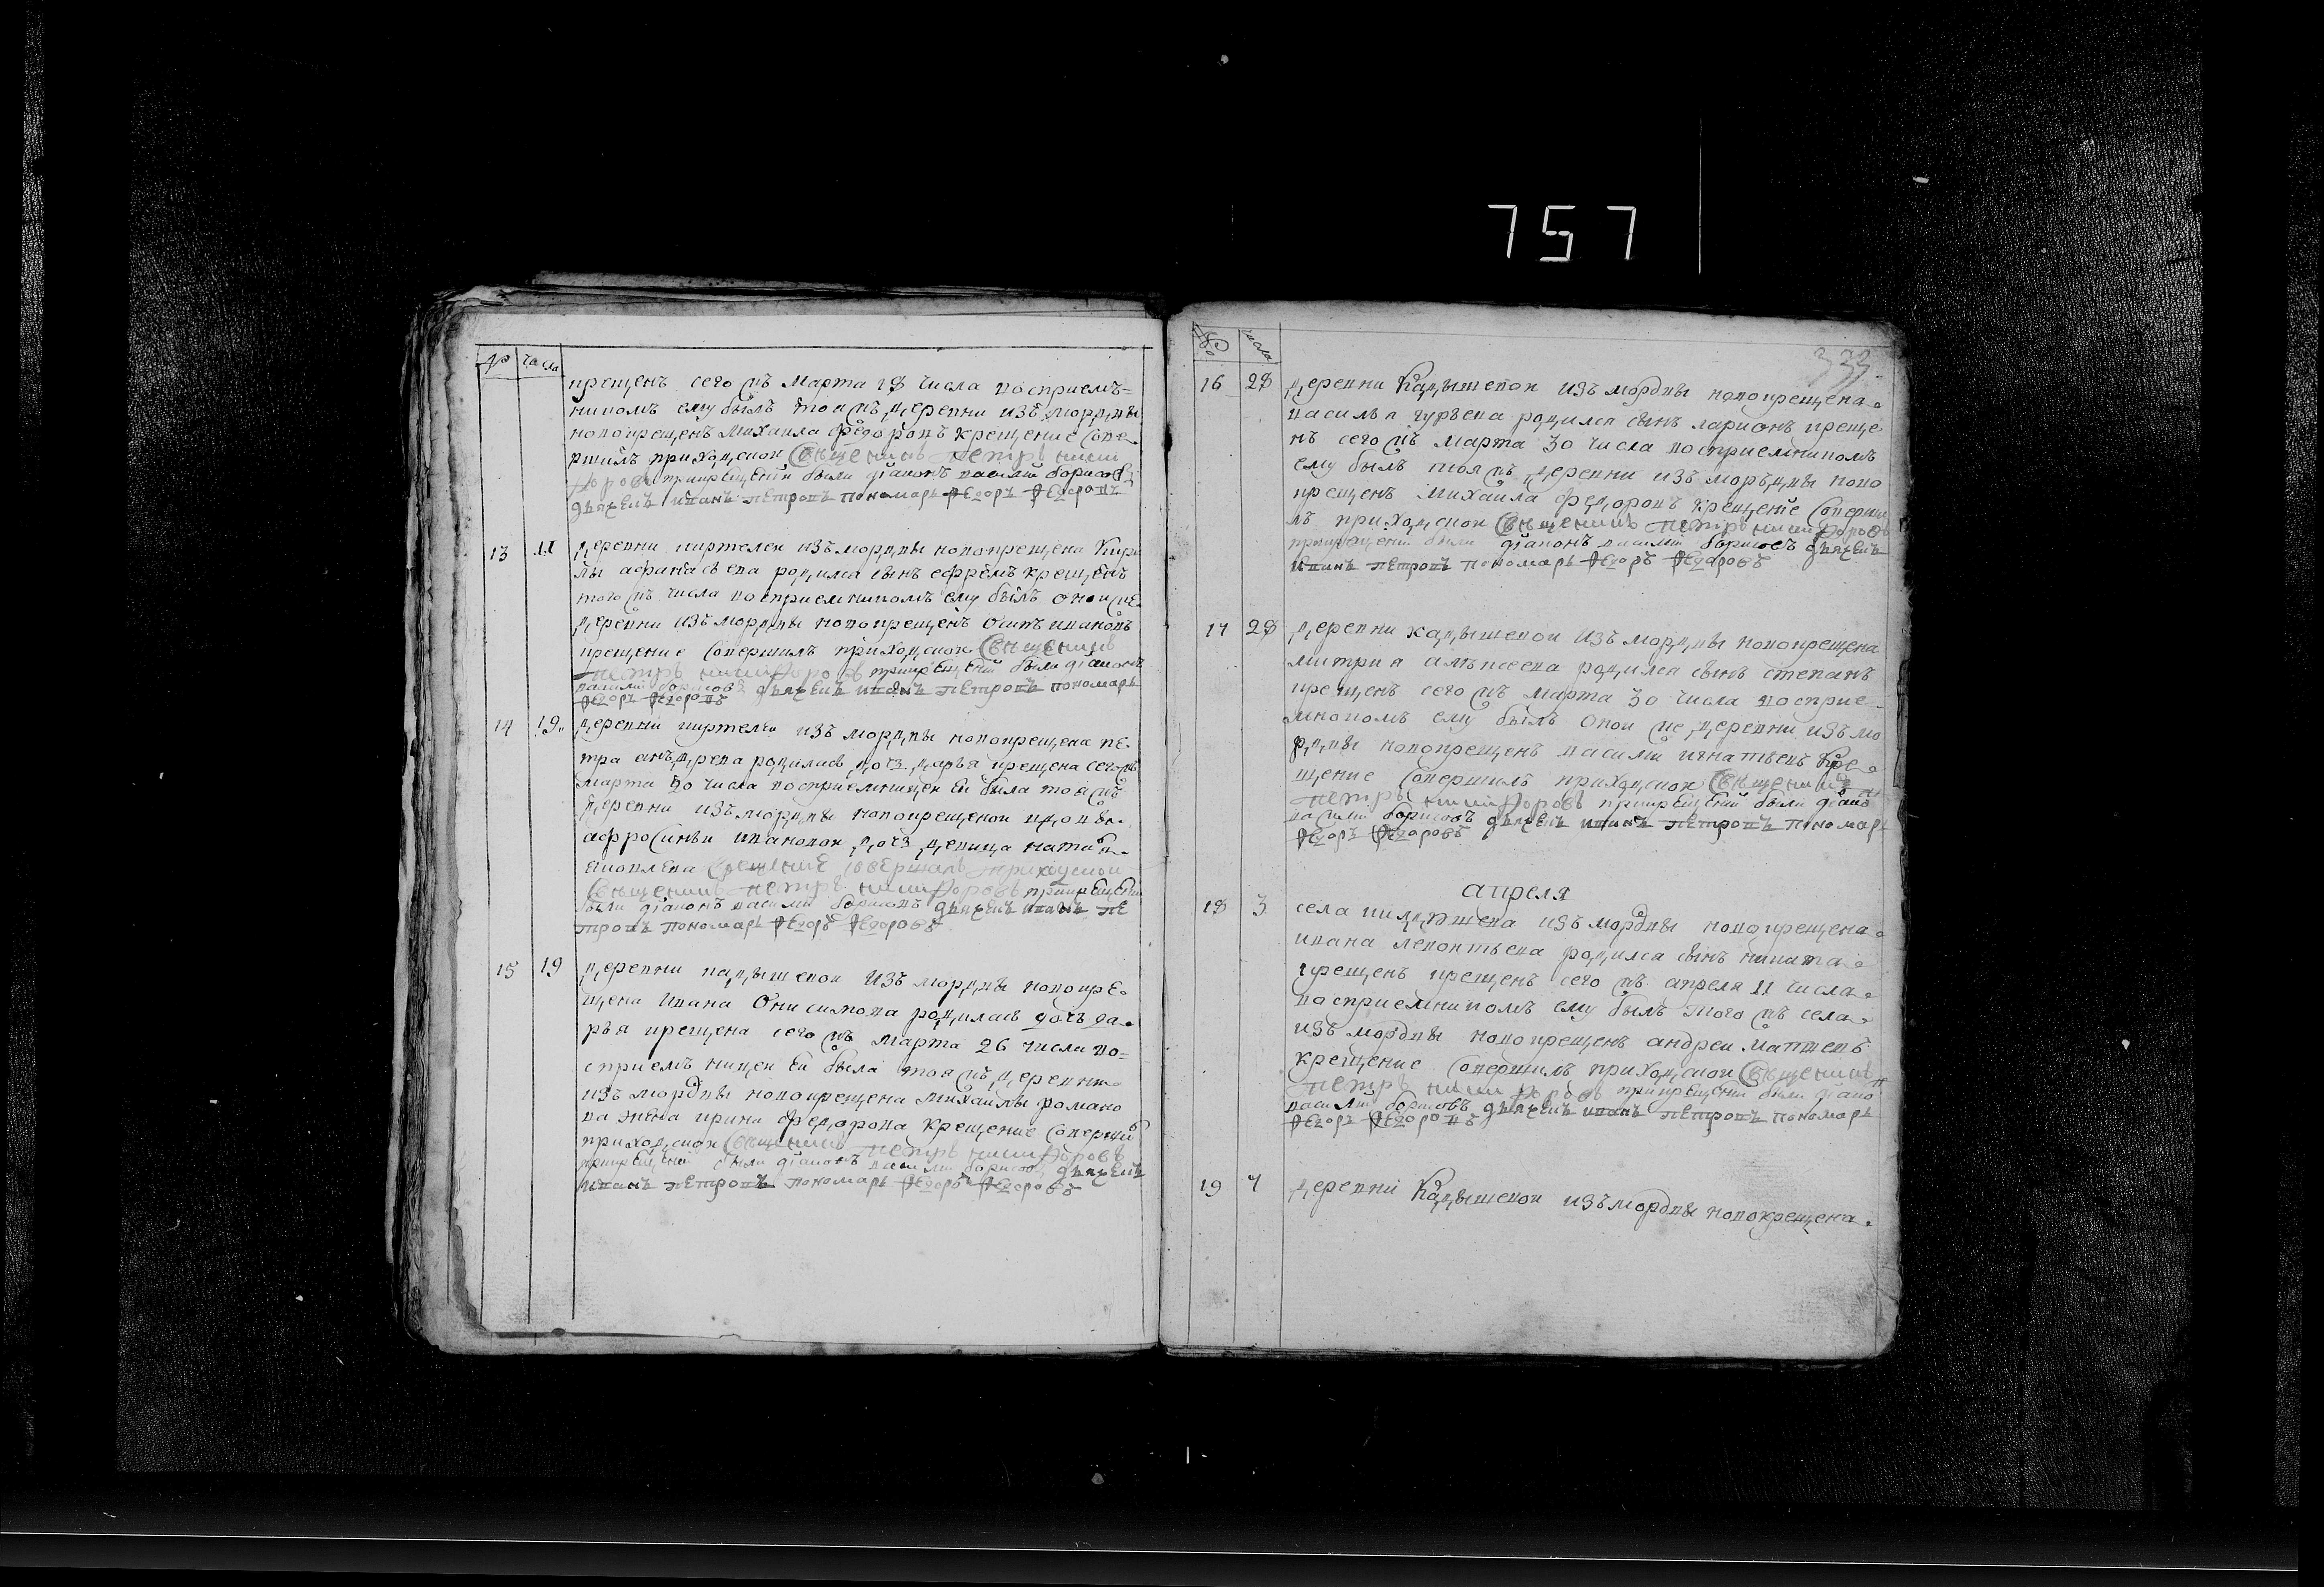 757
№ числа
крещенъ сего мца Марта 18 числа восприемъ=
никомъ ему былъ тоя жъ деревни изъ мордвы
новокрещенъ Михаила Федоровъ крещение сове
ршилъ приходской Священникъ Петръ Ники
форовъ прикрещении были дiаконъ василий борисовъ
дьячекъ иванъ петровъ пономарь Федоръ Федоровъ
13 11 деревни киртелеи изъ мордвы новокрещена Кири
лы афанасьева родился сынъ ефремъ крещенъ
того жъ числа восприемникомъ ему былъ оной же
деревни изъ мордвы новокрещенъ осипъ ивановъ
крещение совершилъ приходской Священникъ
Петръ Никифоровъ прикрещении были дiаконъ
василий борисовъ дьячекъ иванъ петровъ пономарь
Федоръ Федоровъ
14 19 деревни киртелеи изъ мордвы новокрещена пе
тра андреева родилась дочь дарья крещена сего жъ
марта 20 числа восприемницеи ей была тоя жъ
деревни изъ мордвы новокрещеной вдовы
афросиньи ивановой дочь девица наталья
яковлева Крещение совершилъ приходской
Священникъ Петръ Никифоровъ прикрещении
были дiаконъ василий борисовъ дьячекъ иванъ пе
тровъ пономарь Федоръ Федоровъ
15 19 деревни кадышевои изъ мордвы новокре
щена Ивана Онисимова родилась дочь да
рья крещена сего жъ марта 26 числа во=
сприемъницеи ей была тоя жъ деревни
изъ мордвы новокрещена михаилы романо
ва жена ирина федорова крещение соверши
приходской Священникъ Петръ Никифоровъ
прикрещении были дiаконъ василий борисовъ дьячекъ
иванъ петровъ пономарь Федоръ Федоровъ
№ числа
333
16 28 деревни Кадышевои изъ мордвы новокрещена
василья гурьева родился сынъ ларионъ креще
нъ сего жъ марта 30 числа восприемникомъ
ему былъ тоя жъ деревни изъ моръдвы ново
крещенъ Михаила федоровъ крещение соверши
лъ приходской Священникъ Петръ Никифоровъ
прикрещении были дiаконъ василий борисовъ дьячекъ
иванъ петровъ пономарь Федоръ Федоровъ
17 28 деревни кадышевои изъ мордвы новокрещена
митрия алексеева родился сынъ степанъ
крещенъ сего жъ марта 30 числа восприе
мникомъ ему былъ оной же деревни изъ мо
рдвы новокрещенъ василий игнатьевъ кре
щение совершилъ приходской Священникъ
Петръ Никифоровъ прикрещении были дiаконъ
василий борисовъ дьячекъ иванъ петровъ пономарь
Федоръ Федоровъ
апреля
18 3 села изъ мордвы новокрещена
ивана леонтьева родился сынъ никита
крещенъ крещенъ сего жъ апреля 11 числа
восприемникомъ ему былъ того жъ села
изъ мордвы новокрещенъ андреи матвеевъ
крещение совершилъ приходской Священникъ
Петръ Никифоровъ прикрещении были дiаконъ
василий борисовъ дьячекъ иванъ петровъ пономарь
Федоръ Федоровъ
19 4 деревни Кадышевои изъ мордвы новокрещена